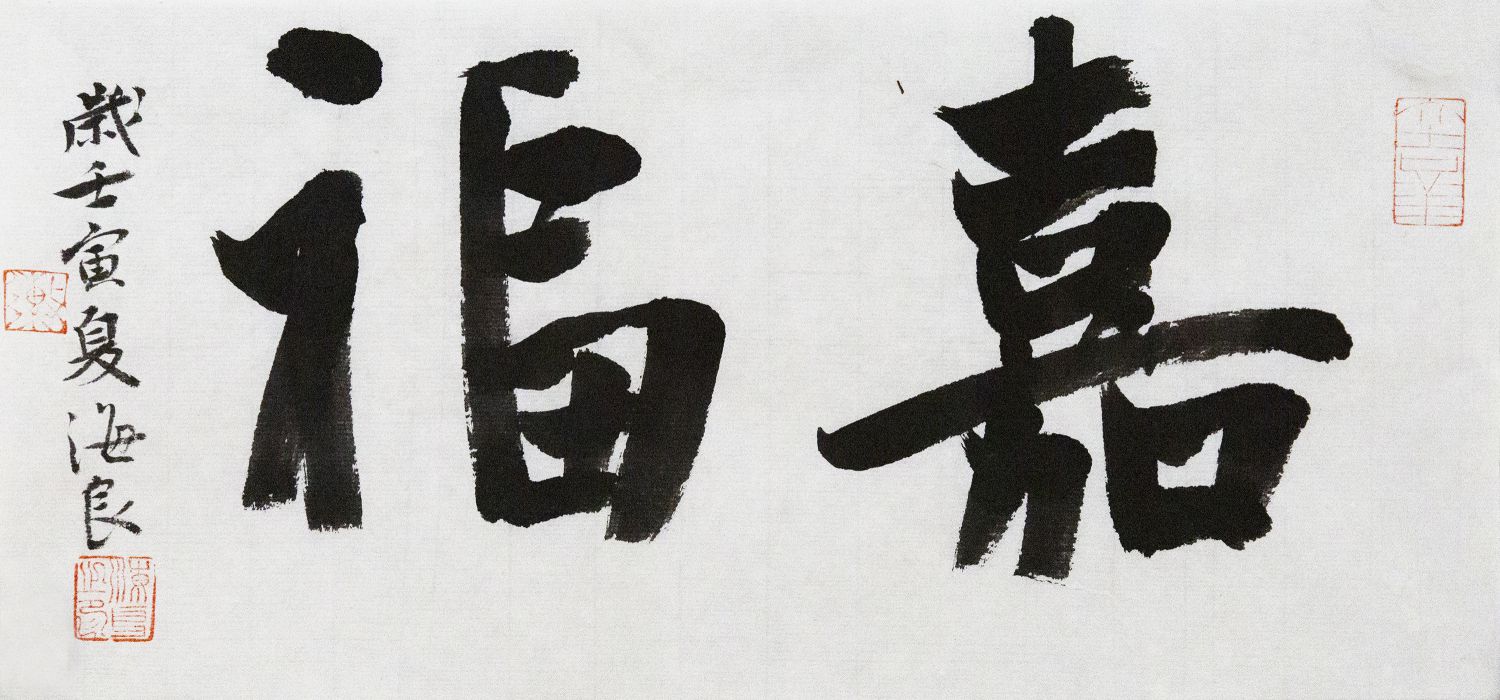 嘉福
歲壬寅夏海良